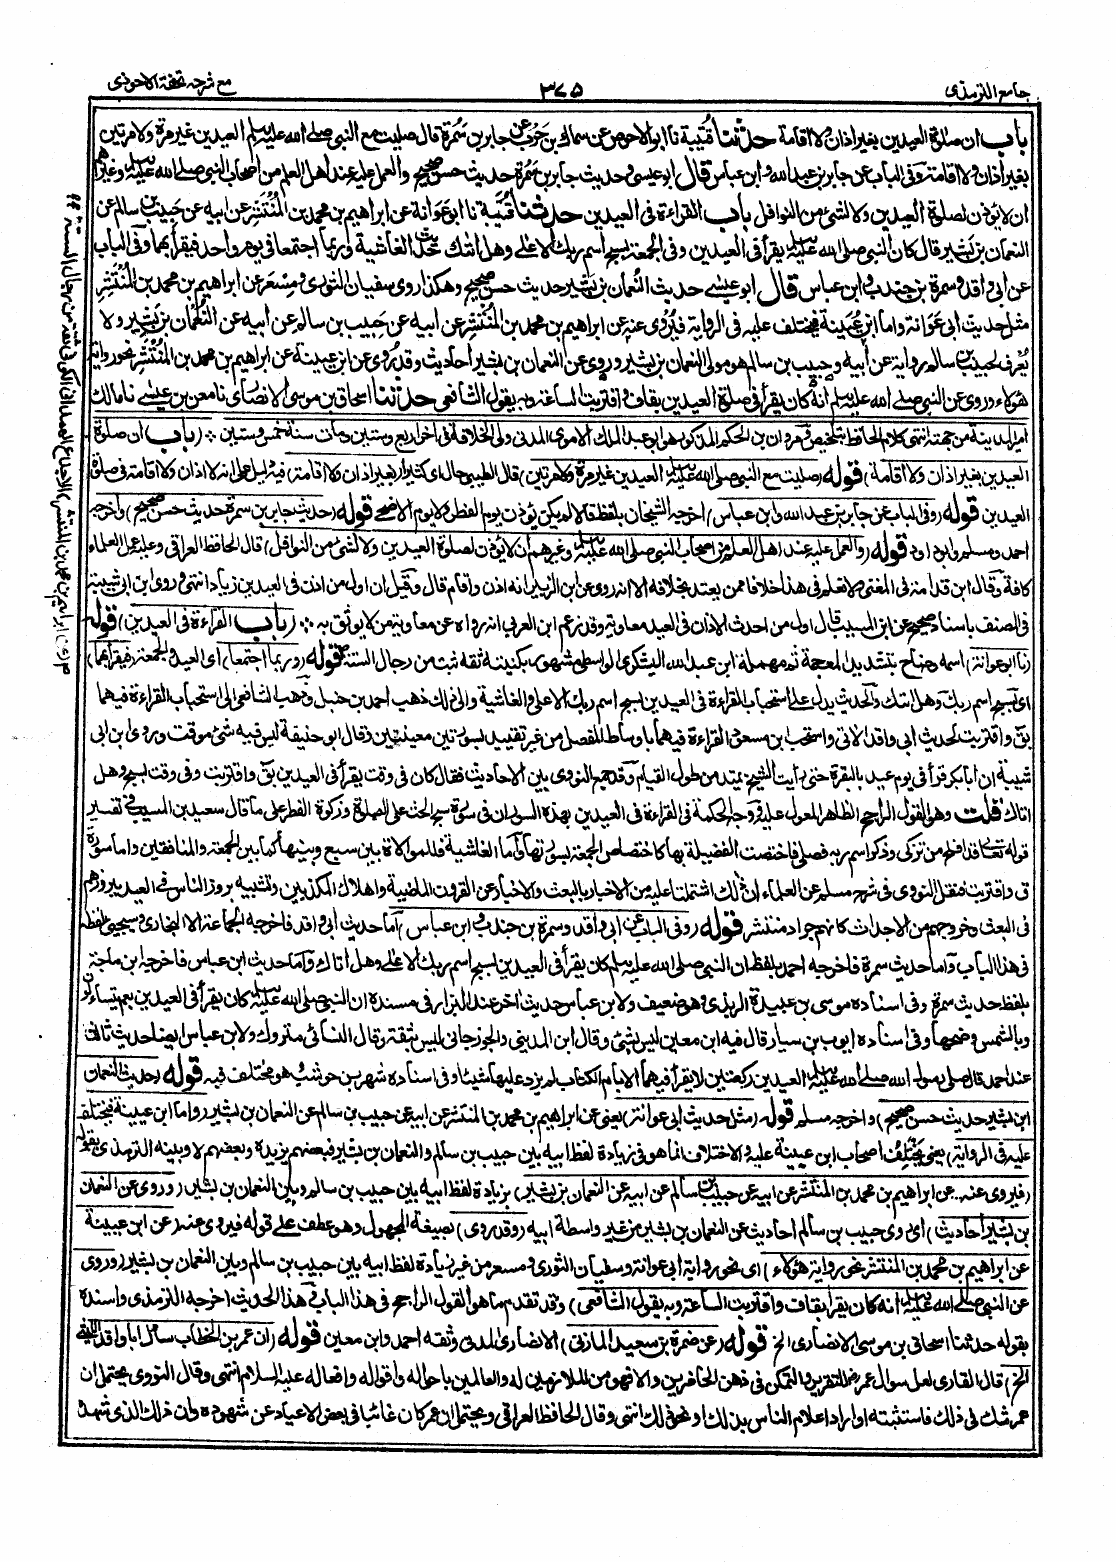 جامع الترمذي
٣٧٥
مع شرحه تحفة الاحوذي
باب ان صلوة العيدين بغير اذان ولا اقامة حدثنا قتيبة نا ابو الاحوص عن سماك بن حرب عن جابر بن سمرة قال صليت مع النبي صلى الله عليه وسلم العيدين غير مرة ولا مرتين
بغير اذان ولا اقامة وفي الباب عن جابر بن عبد الله وابن عباس قال ابو عيسى وحديث جابر بن سمرة حديث حسن صحيح والعمل عليه عند اهل العلم من اصحاب النبي صلى الله عليه وسلم وغيرهم
ان لا يؤذن لصلوة العيدين ولا لشئ من النوافل باب القراءة في العيدين حدثنا قتيبة نا ابو عوانة عن ابراهيم بن محمد بن المنتشر عن ابيه عن حبيب بن سالم عن
النعمان بن بشير قال كان النبي صلى الله عليه وسلم يقرأ في العيدين وفي الجمعة بسبح اسم ربك الاعلى وهل اتاك حديث الغاشية وربما اجتمعا في يوم واحد فيقرأ بهما وفي الباب
عن ابي واقد وسمرة بن جندب وابن عباس قال ابو عيسى حديث النعمان بن بشير حديث حسن صحيح وهكذا روى سفيان الثوري ومسعر عن ابراهيم بن محمد بن المنتشر
مثل حديث ابي عوانة واما ابن عيينة فيختلف عليه في الرواية فيروى عنه عن ابراهيم بن محمد بن المنتشر عن ابيه عن حبيب بن سالم عن ابيه عن النعمان بن بشير ولا
يعرف لحبيب بن سالم رواية عن ابيه وحبيب بن سالم هو مولى النعمان بن بشير وروى عن النعمان بن بشير احاديث وقد روى عن ابن عيينة عن ابراهيم بن محمد بن المنتشر نحو رواية
هؤلاء وروى عن النبي صلى الله عليه وسلم انه كان يقرأ في صلوة العيدين بقاف واقتربت الساعة وبه يقول الشافعي حدثنا اسحاق بن موسى الانصاري نا معن بن عيسى نا مالك
امير المدينة من جهته انتهى كلام الحافظ بتلخيص ومروان بن الحكم المذكور هو ابن عبد الملك الاموي المدني ولي الخلافة في اخر اربع وستين ومات سنة خمس وستين (باب ان صلوة
العيدين بغير اذان ولا اقامة) قوله (صليت مع النبي صلى الله عليه وسلم العيدين غير مرة ولا مرتين) قال الطيبي حال اي كثيرا (بغير اذان ولا اقامة) فيه دليل على انه لا اذان ولا اقامة في صلوة
العيدين قوله (وفي الباب عن جابر بن عبد الله وابن عباس) اخرجه الشيخان بلفظ قالا لم يكن يؤذن يوم الفطر ولا يوم الاضحى قوله (حديث جابر بن سمرة حديث حسن صحيح) واخرجه
احمد ومسلم وابو داود قوله (والعمل عليه عند اهل العلم من اصحاب النبي صلى الله عليه وسلم وغيرهم ان لا يؤذن لصلوة العيدين ولا لشئ من النوافل) قال الحافظ العراقي وعليه عمل العلماء
كافة وقال ابن قدامة في المغني ولا نعلم في هذا خلافا ممن يعتد بخلافه الا انه روي عن ابن الزبير انه اذن واقام قال وقيل ان اول من اذن في العيدين زياد انتهى وروى ابن ابي شيبة
في المصنف باسناد صحيح عن ابن المسيب قال اول من احدث الاذان في العيد معاوية وقد زعم ابن العربي انه رواه عن معاوية من لا يوثق به (باب القراءة في العيدين) قوله
(نا ابو عوانة) اسمه وضاح بتشديد المعجمة ثم مهملة ابن عبد الله اليشكري الواسطي مشهور بكنيته ثقة ثبت من رجال الستة قوله (وربما اجتمعا) اي العيد والجمعة (فيقرأ بهما)
اي بسبح اسم ربك وهل اتاك والحديث يدل على استحباب القراءة في العيدين بسبح اسم ربك الاعلى والغاشية والى ذلك ذهب احمد بن حنبل وذهب الشافعي الى استحباب القراءة فيهما
بق واقتربت لحديث ابي واقد الاتي واستحب ابن مسعود القراءة فيهما باوساط المفصل من غير تقييد بسورتين معينتين وقال ابو حنيفة ليس فيه شئ موقت وروى ابن ابي
شيبة ان ابا بكر قرأ في يوم عيد بالبقرة حتى رأيت الشيخ يميد من طول القيام وقد جمع النووي بين الاحاديث فقال كان في وقت يقرأ في العيدين بق واقتربت وفي وقت بسبح وهل
اتاك قلت وهو القول الراجح الظاهر المعول عليه ووجه الحكمة في القراءة في العيدين بهذه السور ان في سورة سبح الحث على الصلوة وزكوة الفطر على ما قال سعيد بن المسيب في تفسير
قوله تعالى قد افلح من تزكى وذكر اسم ربه فصلى فاختصت الفضيلة بها كاختصاص الجمعة بسورتها واما الغاشية فللموالاة بين سبح وبينها كما بين الجمعة والمنافقين واما سورة
ق واقتربت فنقل النووي في شرح مسلم عن العلماء ان ذلك لما اشتملتا عليه من الاخبار بالبعث والاخبار عن القرون الماضية واهلاك المكذبين وتشبيه بروز الناس في العيد ببروزهم
في البعث وخروجهم من الاجداث كانهم جراد منتشر قوله (وفي الباب عن ابي واقد وسمرة بن جندب وابن عباس) اما حديث ابي واقد فاخرجه الجماعة الا البخاري سيجيئ لفظه
في هذا الباب واما حديث سمرة فاخرجه احمد بلفظ ان النبي صلى الله عليه وسلم كان يقرأ في العيدين بسبح اسم ربك الاعلى وهل اتاك واما حديث ابن عباس فاخرجه ابن ماجة
بلفظ حديث سمرة وفي اسناده موسى بن عبيدة الربذي وهو ضعيف ولابن عباس حديث اخر عند البزار في مسنده ان النبي صلى الله عليه وسلم كان يقرأ في العيدين بعم يتساءلون
وبالشمس وضحها وفي اسناده ايوب بن سيار قال فيه ابن معين ليس بشئ وقال ابن المديني والجوزجاني ليس بثقة وقال النسائي متروك ولابن عباس ايضا حديث ثالث
عند احمد قال صلى رسول الله صلى الله عليه وسلم العيدين ركعتين لا يقرأ فيهما الا بام الكتاب لم يزد عليها شيئا وفي اسناده شهر بن حوشب وهو مختلف فيه قوله (حديث النعمان
ابن بشير حديث حسن صحيح) واخرجه مسلم قوله (مثل حديث ابي عوانة) يعني عن ابراهيم بن محمد بن المنتشر عن ابيه عن حبيب بن سالم عن النعمان بن بشير (واما ابن عيينة فيختلف
عليه في الرواية) يعني يختلف اصحاب ابن عيينة عليه والاختلاف انما هو في زيادة لفظ ابيه بين حبيب بن سالم والنعمان بن بشير فبعضهم يزيده وبعضهم لا وبينه الترمذي بقوله
(فيروى عنه عن ابراهيم بن محمد بن المنتشر عن ابيه عن حبيب بن سالم عن ابيه عن النعمان بن بشير) بزيادة لفظ ابيه بين حبيب بن سالم وبين النعمان بن بشير (وروى عن النعمان
بن بشير احاديث) اي روى حبيب بن سالم احاديث عن النعمان بن بشير من غير واسطة ابيه (وقد روى) بصيغة المجهول وهو عطف على قوله فيروى عنه (عن ابن عيينة
عن ابراهيم بن محمد بن المنتشر نحو رواية هؤلاء) اي نحو رواية ابي عوانة وسفيان الثوري ومسعر من غير زيادة لفظ ابيه بين حبيب بن سالم وبين النعمان بن بشير (وروى
عن النبي صلى الله عليه وسلم انه كان يقرأ بقاف واقتربت الساعة وبه يقول الشافعي) وقد تقدم ما هو القول الراجح في هذا الباب في هذا الحديث اخرجه الترمذي واسنده
بقوله حدثنا اسحاق بن موسى الانصاري الخ قوله (عن ضمرة بن سعيد المازني) الانصاري المدني وثقه احمد وابن معين قوله (ان عمر بن الخطاب سأل ابا واقد الليثي
الخ) قال القاري لعل سؤال عمر للتقرير والتمكن في ذهن الحاضرين والا فهو من الملازمين له والعالمين باحواله واقواله وافعاله عليه السلام انتهى وقال النووي يحتمل ان
عمر شك في ذلك فاستثبته او اراد اعلام الناس بذلك او نحو ذلك انتهى وقال الحافظ العراقي ويحتمل ان عمر كان غائبا في بعض الاعياد عن شهوده وان ذلك الذي شهده